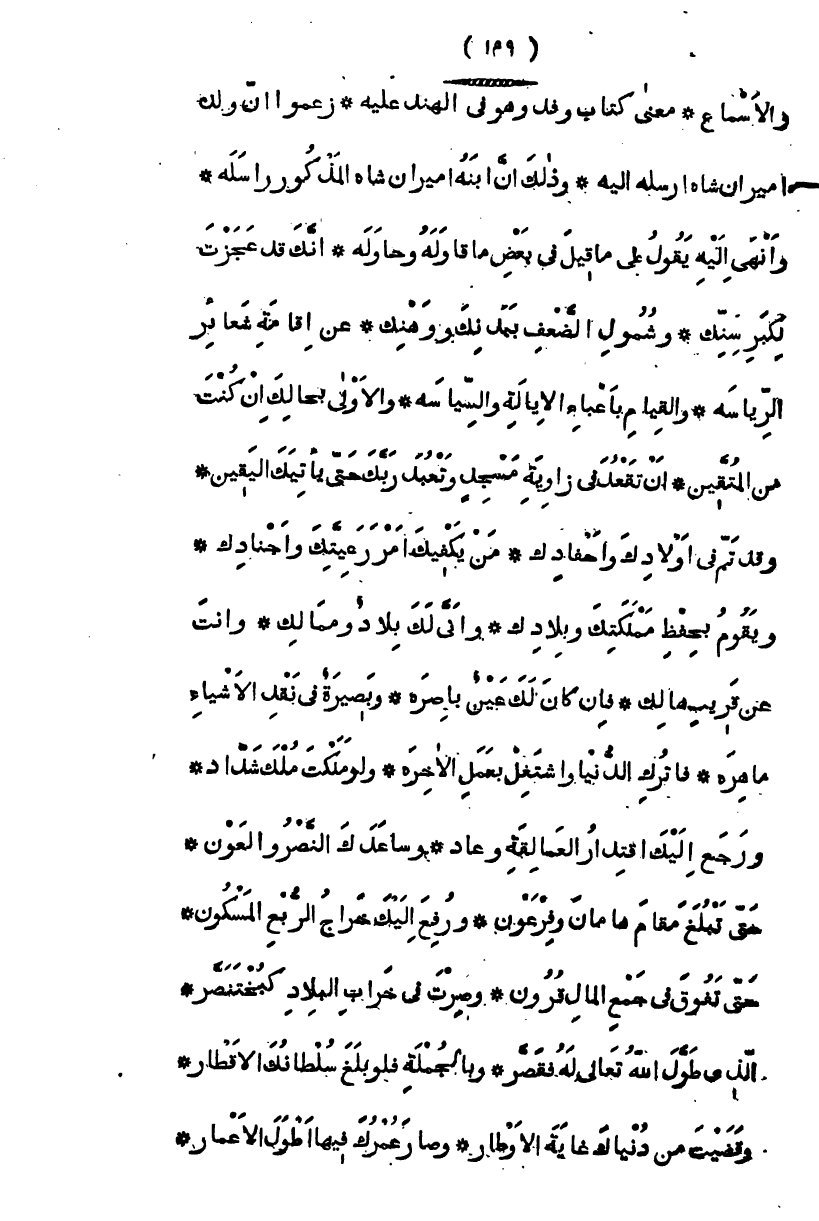 ( ١٥٩ )
والأَسْماع * معنىٰ كتاب وفد وهو فى الهند عليه * زعموا انّ ولك
اميران شاه ارسله اليه * وذٰلكَ انَّ ابنَهُ اميران شاه المَذْكُور راسَلَه *
وَأَنْهَى اِلَيْهِ يَقُولُ على ما قِيلَ فى بَعْضِ ما قاوَلَهُ وحاوَلَه * انَّكَ قد عَجَزْتَ
لِكَبَرِ سِنِّك * وشُمُولِ الضَّعْفِ بَدَنِكَ ووَهْنِك * عن اِقامَةِ شَعائِر
الرِّياسَه * والقِيامِ بأَعْباءِ الاِيالَةِ والسِّياسَه * والاَوْلٰى بحالِكَ اِنْ كُنْتَ
من المُتَّقِين * اَنْ تَقْعُدَ فى زاوِيَةِ مَسْجِدٍ وتَعْبُدَ رَبَّكَ حَتَّى يأتِيَكَ اليَقِين *
وقد تَمَّ فى اَوْلادِكَ واَحْفادِك * مَنْ يَكْفِيكَ اَمْرَ رَعِيَّتِكَ واَجْنادِك *
ويَقُومُ بحِفْظِ مَمْلَكَتِكَ وبِلادِك * وانَّى لَكَ بِلادٌ ومَمالِك * وانتَ
عن قَرِيبٍ هالِك * فاِن كانَ لَكَ عَيْنٌ باصِرَه * وبَصِيرَةٌ فى نَقْدِ الاَشْياءِ
ماهِرَه * فاتْرُكِ الدُّنْيا واشتَغِلْ بعَمَلِ الاٰخِرَه * ولو مَلَكْتَ مُلْكَ شَدّاد *
ورَجَع اِلَيْكَ اقتِدارُ العَمالِقَةِ وعاد * وساعَدَكَ النَّصْرُ والعَوْن *
حَتّى تَبْلُغَ مَقامَ هامانَ وفِرْعَوْن * ورُفِعَ اِلَيْكَ خَراجُ الرُّبْعِ المَسْكُون *
حَتّى تَفُوقَ فى جَمْعِ المالِ قُرُون * وصِرْتَ فى خَرابِ البِلادِ كَبُخْتَنَصَّر *
الّذِى طَوَّلَ اللّٰهُ تَعالى لَهُ فقَصَّر * وبالجُمْلَةِ فلو بلَغَ سُلْطانُكَ الاَقْطار *
وقَضَيْتَ من دُنْياكَ غايَةَ الاَوْطار * وصارَ عُمْرُكَ فِيها اَطْوَلَ الاَعْمار *